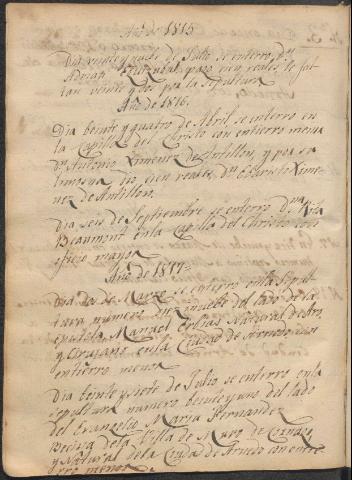 Año de 1815
Dia veinte y siete de Julio se enterro dn.
pago cien reales le fal
tan veinte y dos por la sepultura
Año de 1816.
Dia beinte y quatro de Abril se enterro en
la Capilla del Christo con entierro menor
dn. Antonio Ximenez de Antillon, y por su
limosna dio cien reales dn. Christo Xime
nez de Antillon.
Dia seis de Septiembre se enterro dna. Rita
Beaumont en la Capilla del Christo con
oficio mayor
Año de 1817
Dia dos de Marzo se enterro en la Sepul
tura numero diez y nueve del lado de la
epistola Manuel Natural de
y Cirujano en la Ciudad de Arnedo con
entierro menor
Dia beinte y siete de Julio se enterro en la
sepultura numero beinte y uno del lado
del Evangelio Maria Fernandez
Becina de la Villa de Muro de
y Natural de la Ciudad de Arnedo con entie
rro menor.